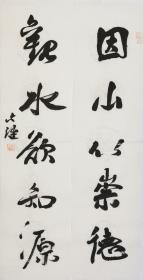 因小以崇德
觀水欲知源